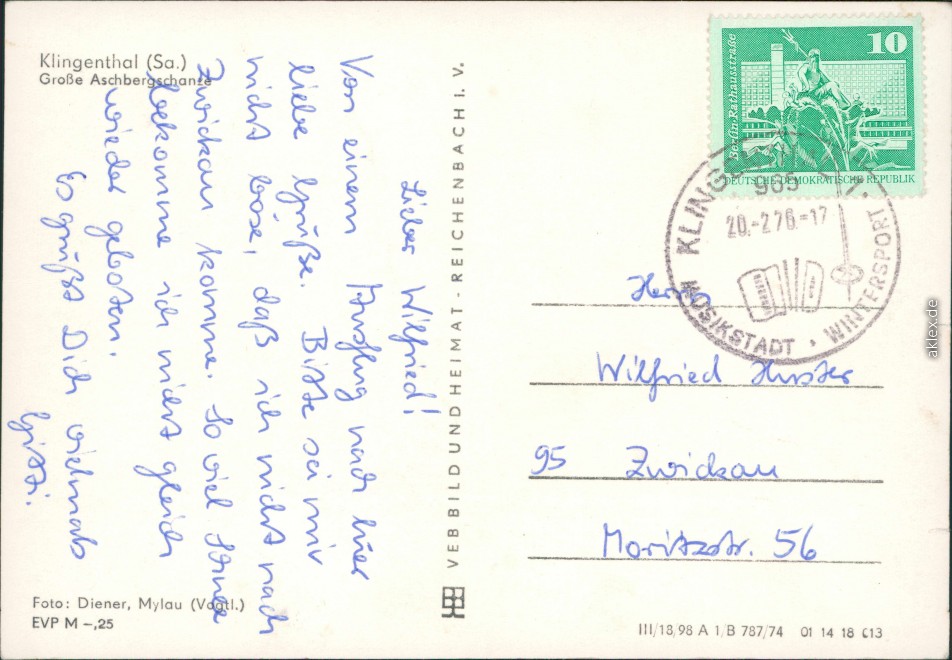 Klingenthal (Sa.)
Große Aschbergschanze
Lieber Wilfried!
Von einem Ausflug nach hier
liebe Grüße. Bitte sei mir
nicht böse, daß ich nicht nach
Zwickau komme. So viel Schnee
bekomme ich nicht gleich
wieder geboten.
Es grüßt Dich vielmals
Gitti.
Foto: Diener, Mylau (Vogtl.)
EVP M –,25
VEB BILD UND HEIMAT - REICHENBACH I. V.
10
Berlin-Rathausstraße
DEUTSCHE DEMOKRATISCHE REPUBLIK
965
20.-2.76.-17
MUSIKSTADT · WINTERSPORT
Herrn
Wilfried Huster
95 Zwickau
Moritzstr. 56
III/18/98 A 1/B 787/74 01 14 18 013
aklex.de